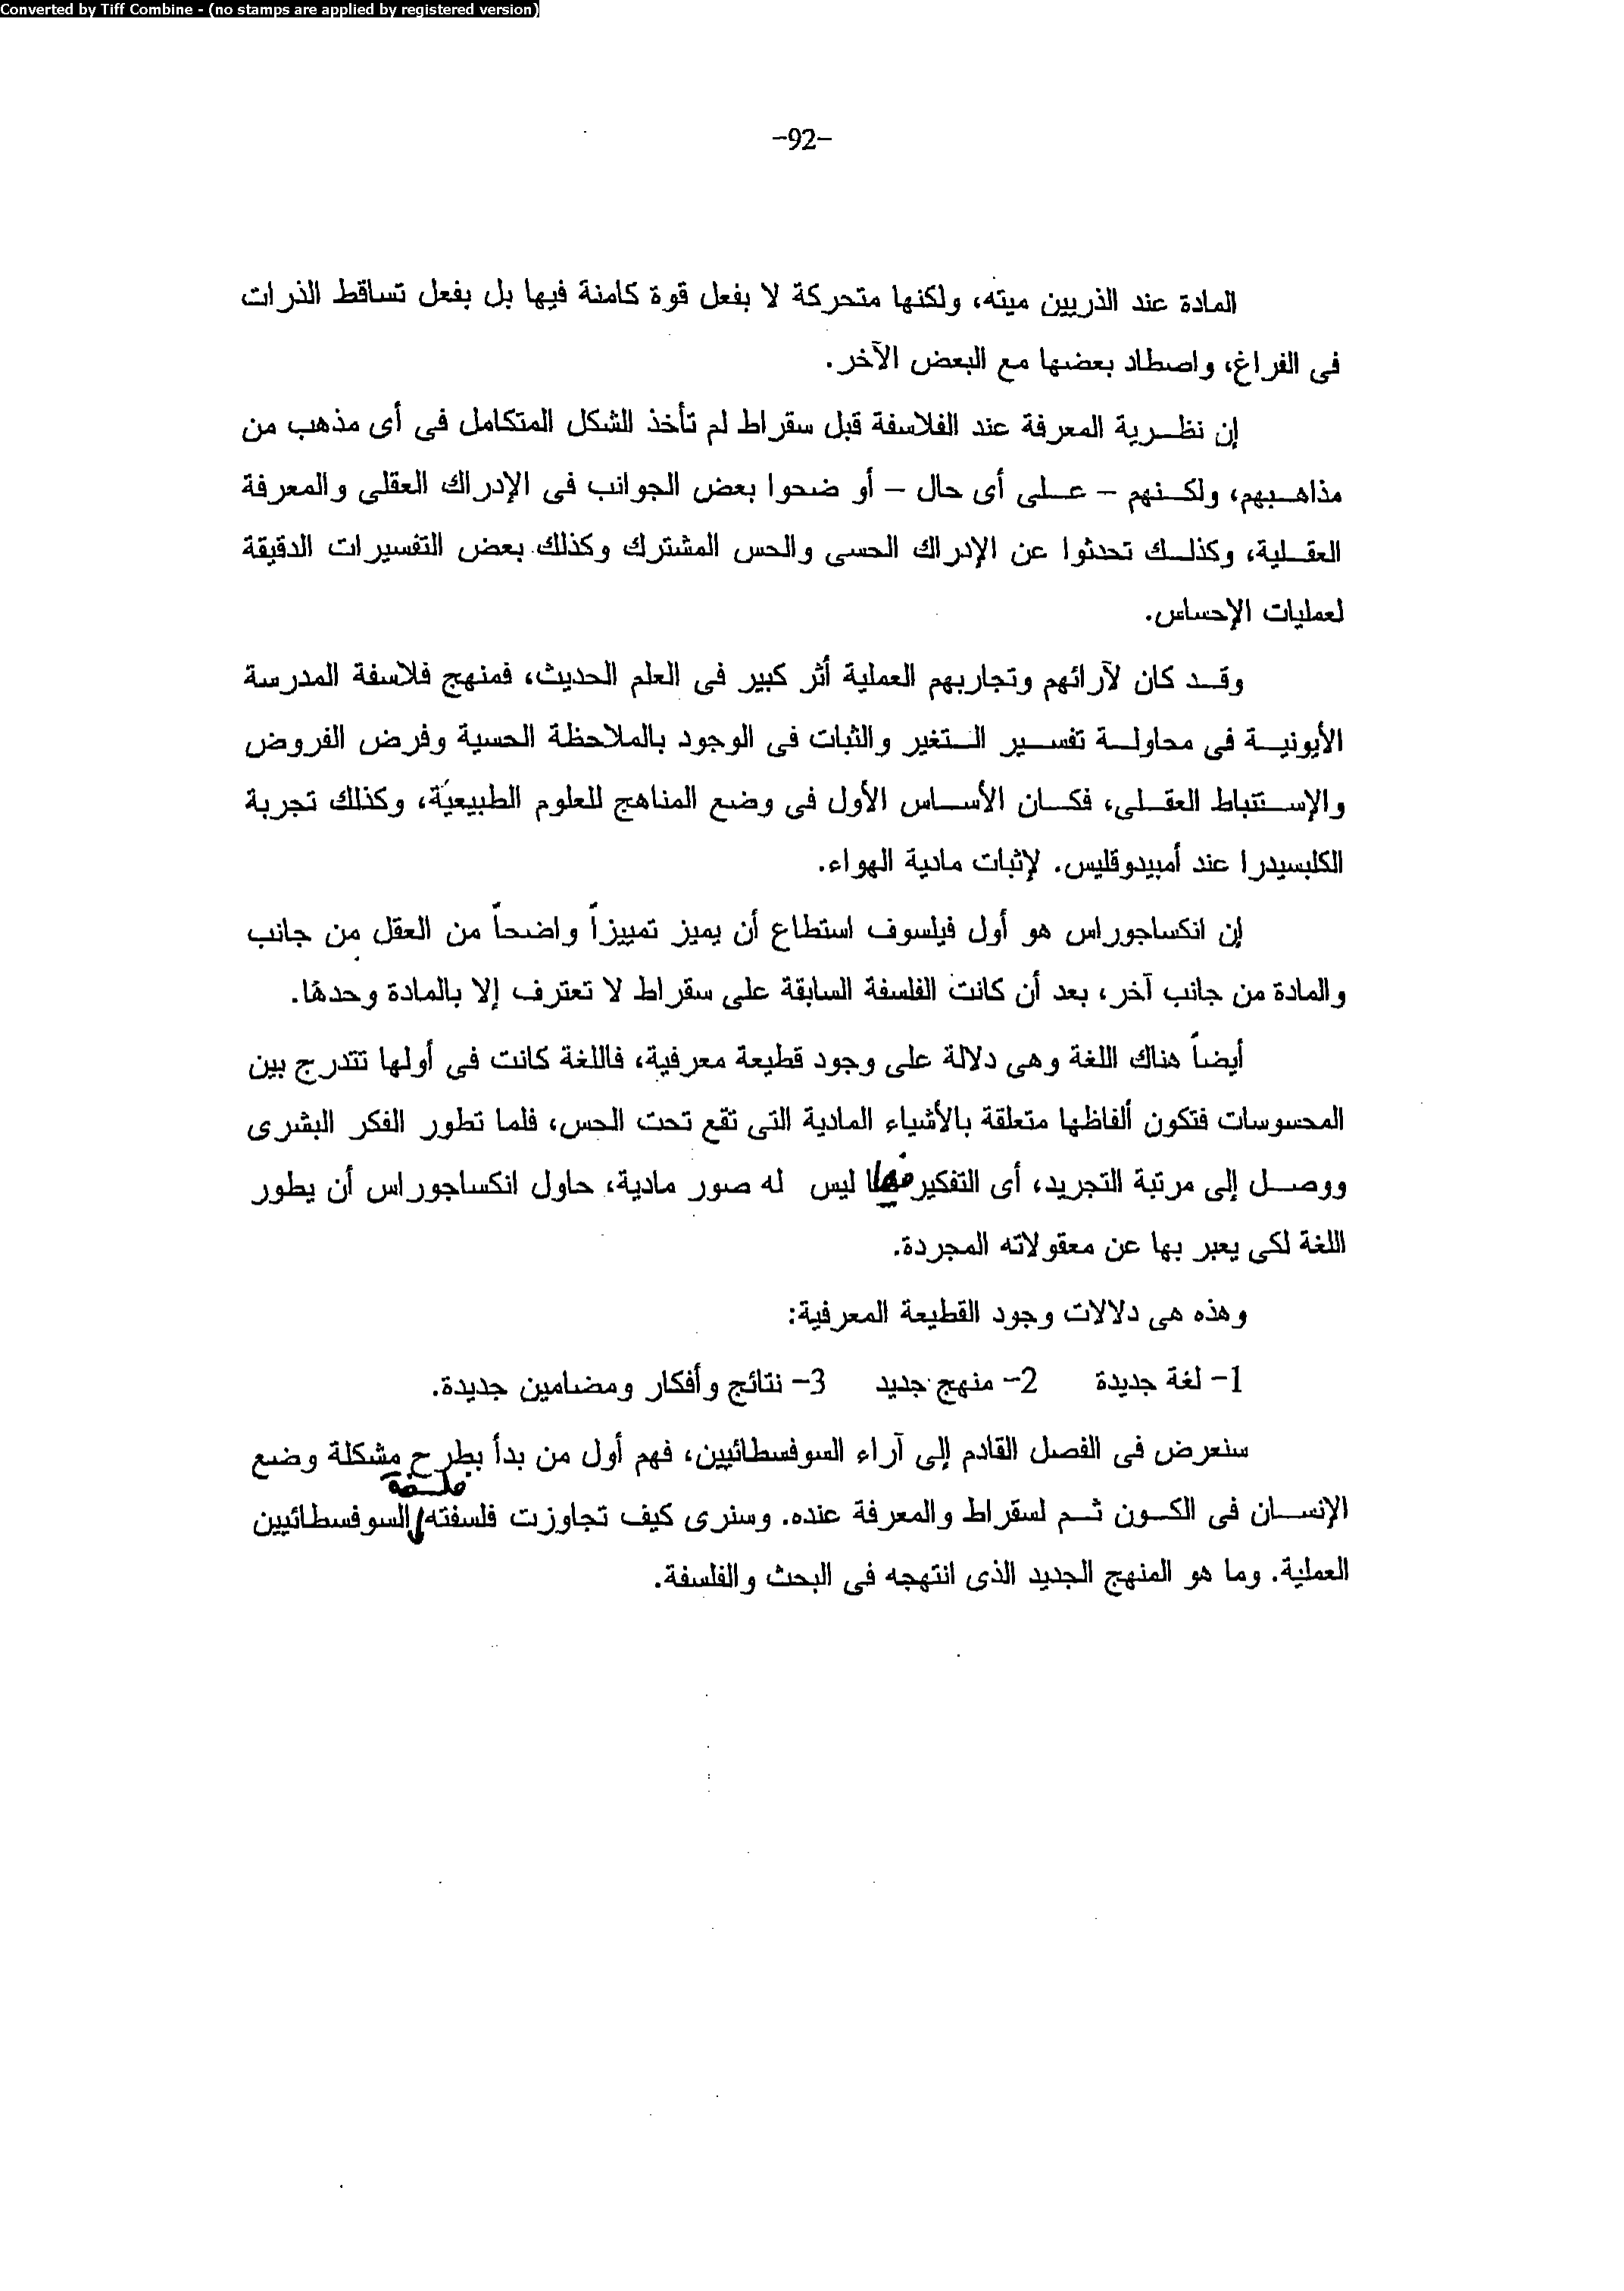 Converted by Tiff Combine - (no stamps are applied by registered version)
-92-
المادة عند الذريين ميته، ولكنها متحركة لا بفعل قوة كامنة فيها بل بفعل تساقط الذرات
فى الفراغ، واصطاد بعضها مع البعض الآخر.
إن نظرية المعرفة عند الفلاسفة قبل سقراط لم تأخذ الشكل المتكامل فى أى مذهب من
مذاهبهم، ولكنهم – على أى حال – أو ضحوا بعض الجوانب فى الإدراك العقلى والمعرفة
العقلية، وكذلك تحدثوا عن الإدراك الحسى والحس المشترك وكذلك بعض التفسيرات الدقيقة
لعمليات الإحساس.
وقد كان لآرائهم وتجاربهم العملية أثر كبير فى العلم الحديث، فمنهج فلاسفة المدرسة
الأيونية فى محاولة تفسير التغير والثبات فى الوجود بالملاحظة الحسية وفرض الفروض
والإستنباط العقلى، فكان الأساس الأول فى وضع المناهج للعلوم الطبيعية، وكذلك تجربة
الكلبسيدرا عند أمبيدوقليس. لإثبات مادية الهواء.
إن انكساجوراس هو أول فيلسوف استطاع أن يميز تمييزاً واضحاً من العقل من جانب
والمادة من جانب آخر، بعد أن كانت الفلسفة السابقة على سقراط لا تعترف إلا بالمادة وحدها.
أيضاً هناك اللغة وهى دلالة على وجود قطيعة معرفية، فاللغة كانت فى أولها تتدرج بين
المحسوسات فتكون ألفاظها متعلقة بالأشياء المادية التى تقع تحت الحس، فلما تطور الفكر البشرى
ووصل إلى مرتبة التجريد، أى التفكير ليس له صور مادية، حاول انكساجوراس أن يطور
اللغة لكى يعبر بها عن معقولاته المجردة.
وهذه هى دلالات وجود القطيعة المعرفية:
1- لغة جديدة 2- منهج جديد 3- نتائج وأفكار ومضامين جديدة.
سنعرض فى الفصل القادم إلى آراء السوفسطائيين، فهم أول من بدأ بطرح مشكلة وضع
الإنسان فى الكون ثم لسقراط والمعرفة عنده. وسنرى كيف تجاوزت فلسفته فلسفة السوفسطائيين
العملية. وما هو المنهج الجديد الذى انتهجه فى البحث والفلسفة.